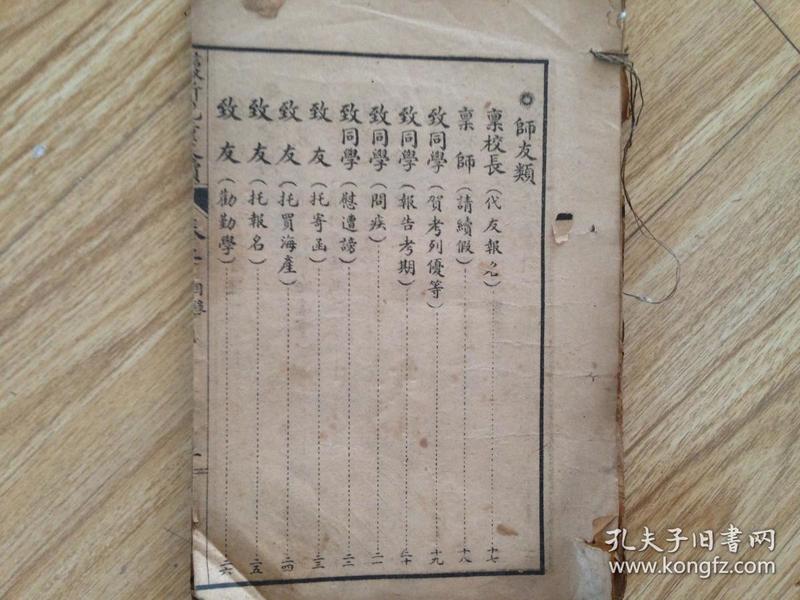 師友類
稟校長(代友報名)十七
稟師(請續假)十八
致同學(賀考列優等)十九
致同學(報告考期)二十
致同學(問疾)二一
致同學(慰遭謗)二二
致友(托寄函)二三
致友(托買海產)二四
致友(托報名)二五
致友(勸勤學)二六
孔夫子旧书网
www.kongfz.com